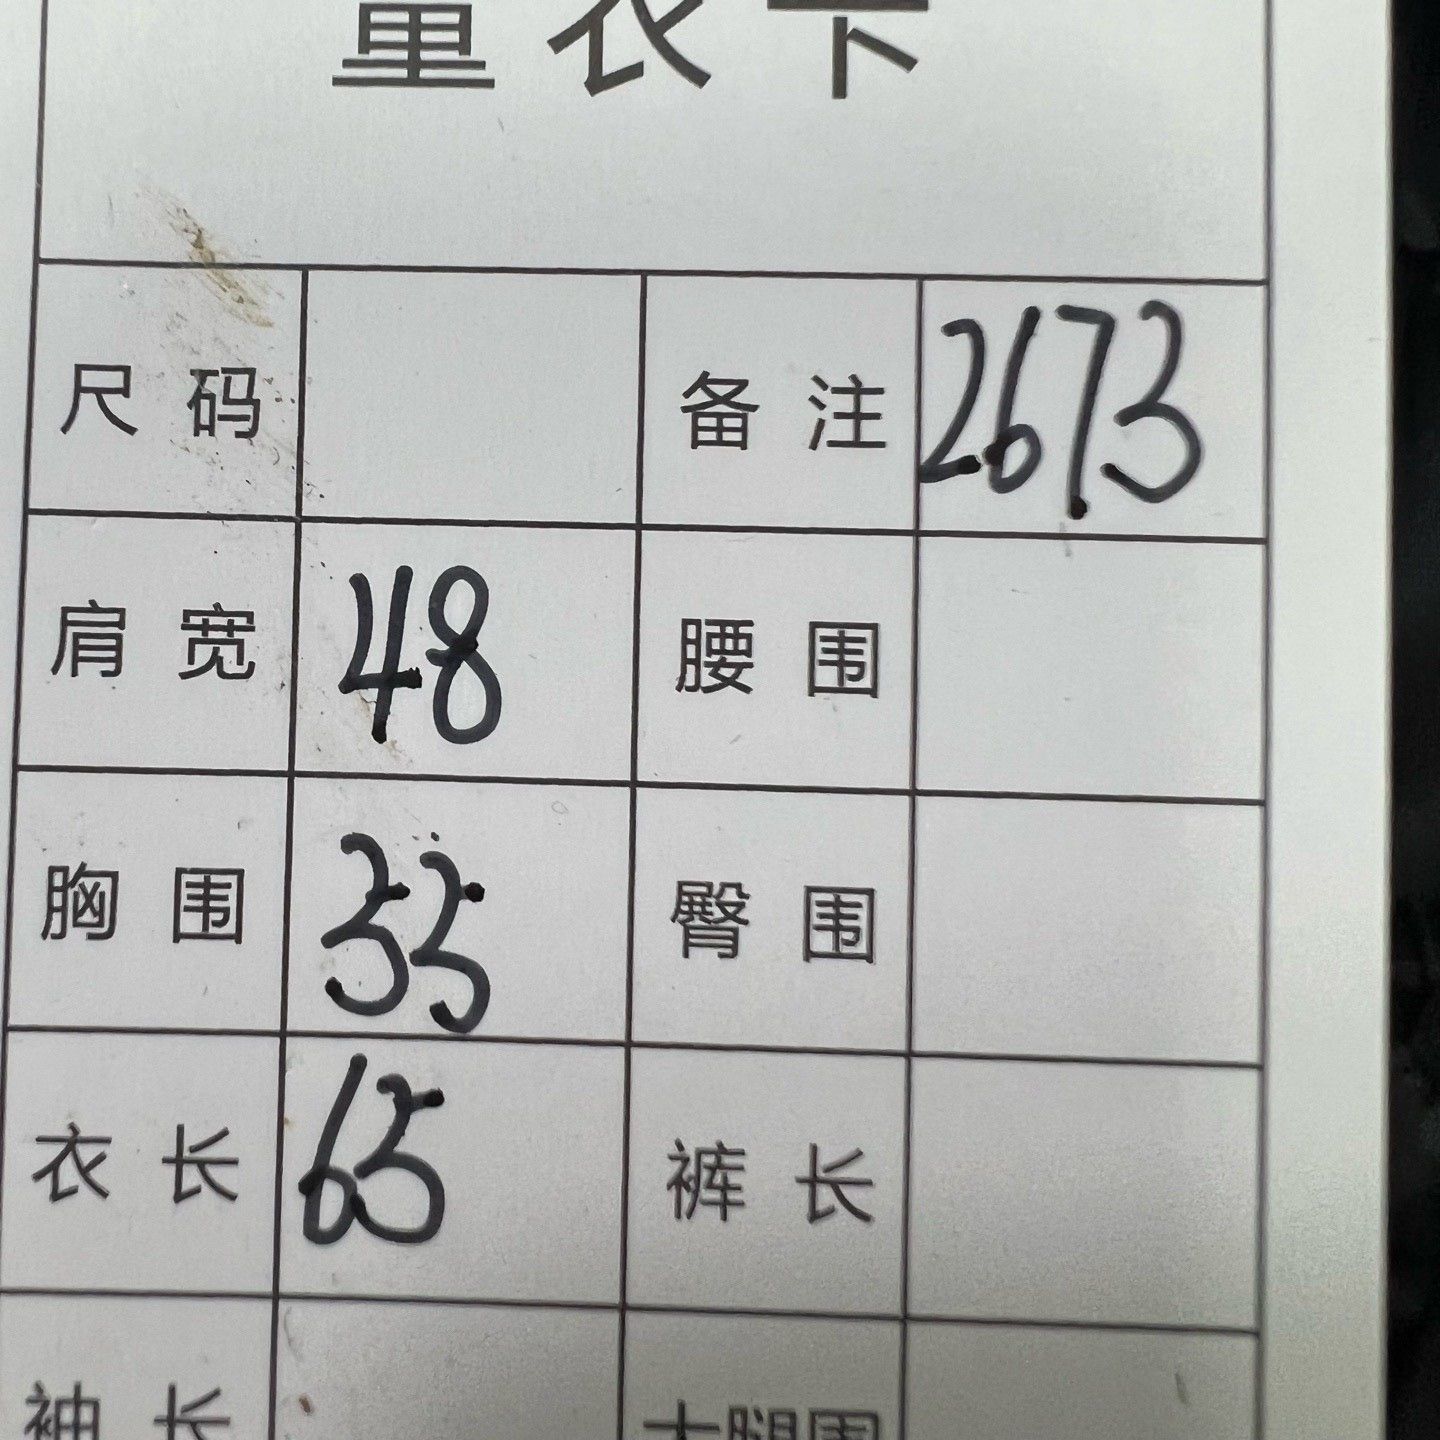 量衣卡
尺码 备注 2673
肩宽 48 腰围
胸围 55 臀围
衣长 65 裤长
袖长 大腿围